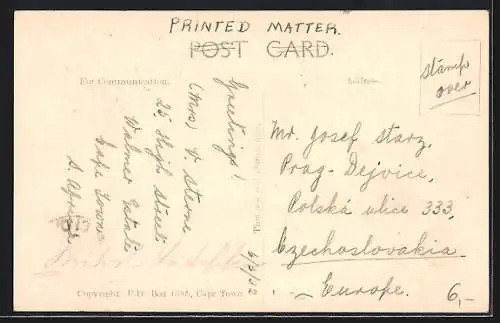 PRINTED MATTER.
POST CARD.
For Communication.
Address
stamp
over
Greetings!
(Mrs) V. Sterne
25 High Street
Walmer Estate
Cape Town
S. Africa
6/3/32
Mr. Josef Starz.
Prag-Dejvice,
Polská ulice 333,
Czechoslovakia
Europe.
6,-
Copyright P.O. Box Cape Town